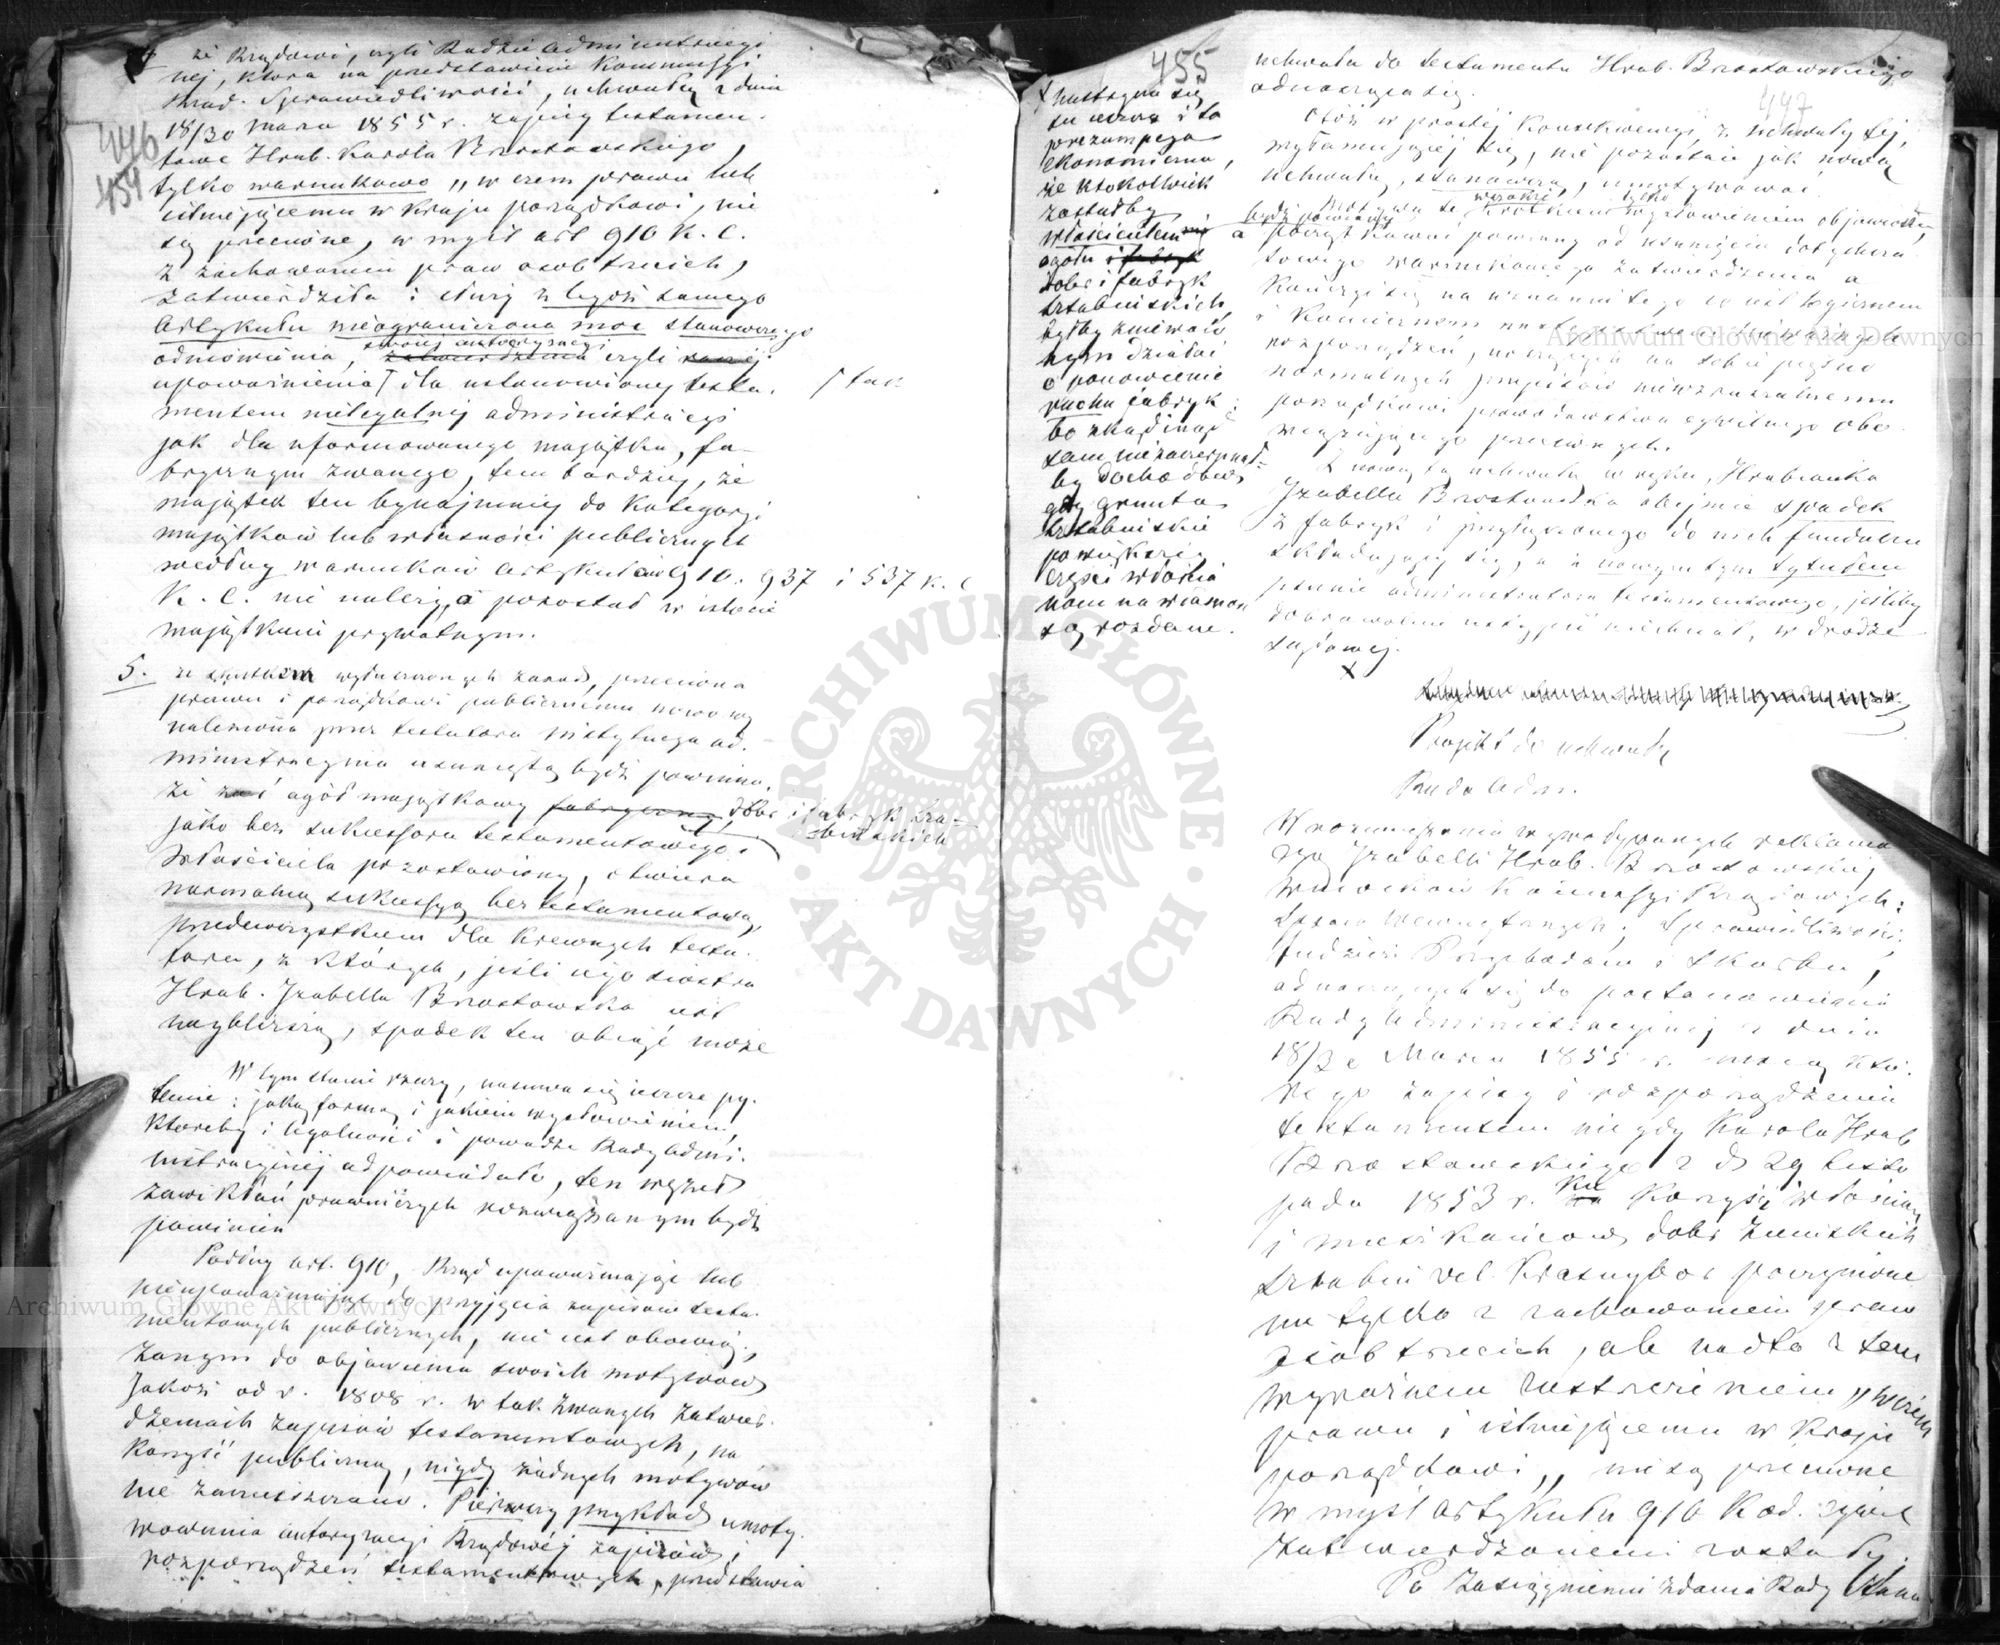 446
454
4 że Rządowi, czyli Radzie Administracyj
nej, która na przedstawienie Kommissyi
Rząd. Sprawiedliwości, uchwałą z dnia
18/30 Marca 1855 r. zapisy testamen-
towe Hrab. Karola Brzostowskiego,
tylko warunkowo „w czem prawu lub
istniejącemu w Kraju porządkowi, nie
są przeciwne, w myśl art 910 K. C.
z zachowaniem praw osób trzecich,
zatwierdziła i służy z tegoż samego
Artykułu nieograniczona moc stanowczego
odmówienia, swojej autoryzacyi
zatwierdzenia czyli
upoważnienia / dla ustanowionej testa. / tak
mentem nielegalnej administracyi
jak dla uformowanego majątku, fa-
brycznym zwanego, tem bardziej, że
majątek ten bynajmniej do kategoryi
majątków lub własności publicznych
według warunków Artykułów 910. 937 i 537 K. C
K. C. nie należy, a pozostał w istocie
majątkiem prywatnym.
5. że skutkiem wytłuszczonych zasad, przeciwna
prawu i porządkowi publicznemu nowo wy
naleziona przez testatora instytucya ad-
ministracyjna usuniętą bydź powinna,
że zaś ogół majątkowy fabryczny, dóbr i fabryk Szta-
binskich
jako bez sukcessora testamentowego i
Właściciela pozostawiony, otwiera
normalną sukcessyą beztestamentową,
przedewszystkiem dla krewnych testa-
tora, z których, jeśli jego siostra
Hrab. Izabella Brzostowska jest
najbliższą, spadek ten objąć może
W tym stanie rzeczy, nasuwa się jeszcze py-
tanie: jaką formą i jakiem wysłowieniem,
któreby i legalności i powadze Rady Admi-
nistracyjnej odpowiadało, ten węzeł
zawikłań prawniczych rozwiązanym bydź
powinien
Podług art. 910, Rząd upoważniając lub
nieupoważniając do przyjęcia zapisów testa-
mentowych publicznych, nie jest obowią-
zanym do objawienia swoich motywów
Jakoż od r. 1808 r. w tak zwanych zatwier-
dzeniach zapisów testamentowych, na
korzyść publiczną, nigdy żadnych motywów
nie zamieszczano. Pierwszy przykład umoty-
wowania autoryzacyi Rządowej zapisów i
rozporządzeń testamentowych, przedstawia
455
447
X nastręcza się
tu wraz i ta
prezumpcya
ekonomiczna,
że ktokolwiek
zostałby
właścicielem
ogółu i fabryk
dóbr i fabryk
Sztabińskich
byłby zniewolo
nym działać
o ponowienie
ruchu fabryk:
bo zkądinąd
sam nie zaczerpnął-
by dochodów,
gdy grunta
Sztabińskie
po większej
części włościa
nom na własność
są rozdane.
uchwała do testamentu Hrab. Brzostowskiego
odnosząca się.
Otóż w prostej konsekwencyi, z uchwały tej
wyłamującej się, nie pozostaje jak nową
uchwałę, stanowczą, umotywować.
Motywa te krótkiem wysłowieniem objawione,
bydź powinny a
począć poczynać powinny od usunięcia dotychcza
sowego warunkowego zatwierdzenia a
kończyć się na uznaniu tego co jest logicznem
i koniecznem
rozporządzeń, noszących na sobie piętno
normalnych przepisów niewzruszalnemu
porządkowi prawodawstwa cywilnego obo-
wiązującego przeciwnych.
Z nową tą uchwałą w ręku, Hrabianka
Izabella Brzostowska obejmie spadek
z fabryk i przyłączonego do nich funduszu
składający się, a z nowym tym tytułem
pozwie administratora testamentowego, jeśliby
dobrowolnie ustąpić niechciał, w drodze
sądowej.
X
Projekt do uchwały
Rada Adm.
W rozważeniu wywoływanych reklama-
cyą Izabelli Hrab. Brzostowskiej
wniosków Kommissyi Rządowych:
Spraw Wewnętrznych; Sprawiedliwości;
tudzież Przychodów i Skarbu,
odnoszących się do postanowienia
Rady Administracyjnej z dnia
18/30 Marca 1855 r. mocą któ-
rego zapisy i rozporządzenia
testamentem niegdy Karola Hrab
Brzostowskiego z d. 29 Listo
pada 1853 r. ku korzyści włościan
i mieszkańców dóbr ziemskich
Sztabin vel Krasnybor poczynione
nie tylko z zachowaniem praw
osób trzecich, ale nadto z tem
wyraźnem zastrzeżeniem „w czem
prawu i istniejącemu w Kraju
porządkowi„ nie są przeciwne
w myśl Artykułu 910 Kod. cywil
zatwierdzonemi zostały.
Po Zasiągnieniu zdania Rady Stanu
ARCHIWUM GŁÓWNE · AKT DAWNYCH ·
Archiwum Główne Akt Dawnych
Archiwum Główne Akt Dawnych